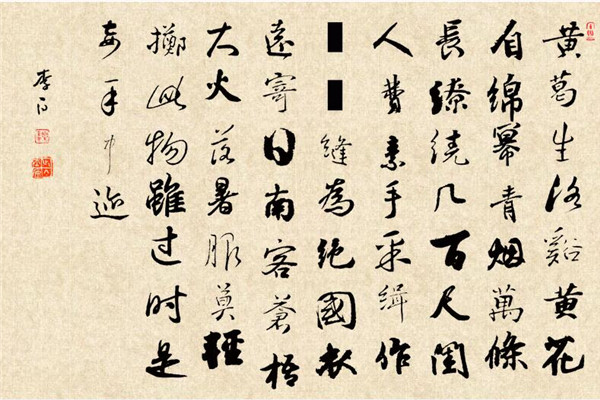 黃葛生洛谿黃花
自綿冪青烟萬條
長繚繞几百尺閨
人費素手采緝作
縫為絕國衣
遠寄日南客蒼梧
大火落暑服莫輕
擲此物雖過時是
妾手中迹
李白